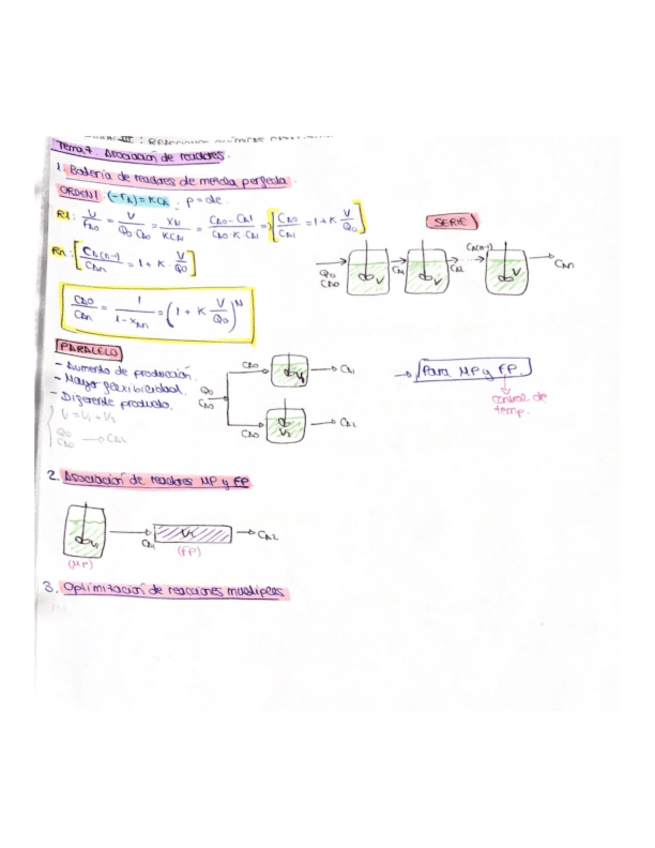 Tema 7. Asociación de reactores.
1. Batería de reactores de mezcla perfecta.
ORDEN 1: (-rA) = KCA ; ρ = cte.
R1: V/FA0 = V/(Q0·CA0) = XA1/(KCA1) = (CA0-CA1)/(CA0·K·CA1) ⇒ [CA0/CA1 = 1 + K V/Q0]
SERIE
Rn: [CA(n-1)/CAn = 1 + K · V/Q0]
Q0
CA0
V
CA1
V
CA2
CA(n-1)
V
CAn
CA0/CAn = 1/(1-XAn) = (1 + K V/Q0)^N
PARALELO
- Aumento de producción.
- Mayor flexibilidad.
- Diferente producto.
V = V1 + V2
Q0
CA0 → CA2
Q0
CA0
CA0
V1
CA1
CA0
V2
CA2
→ Para MP y FP.
control de
temp.
2. Asociación de reactores MP y FP
V1
(MP)
CA1
V2
(FP)
CA2
3. Optimización de reacciones multiples